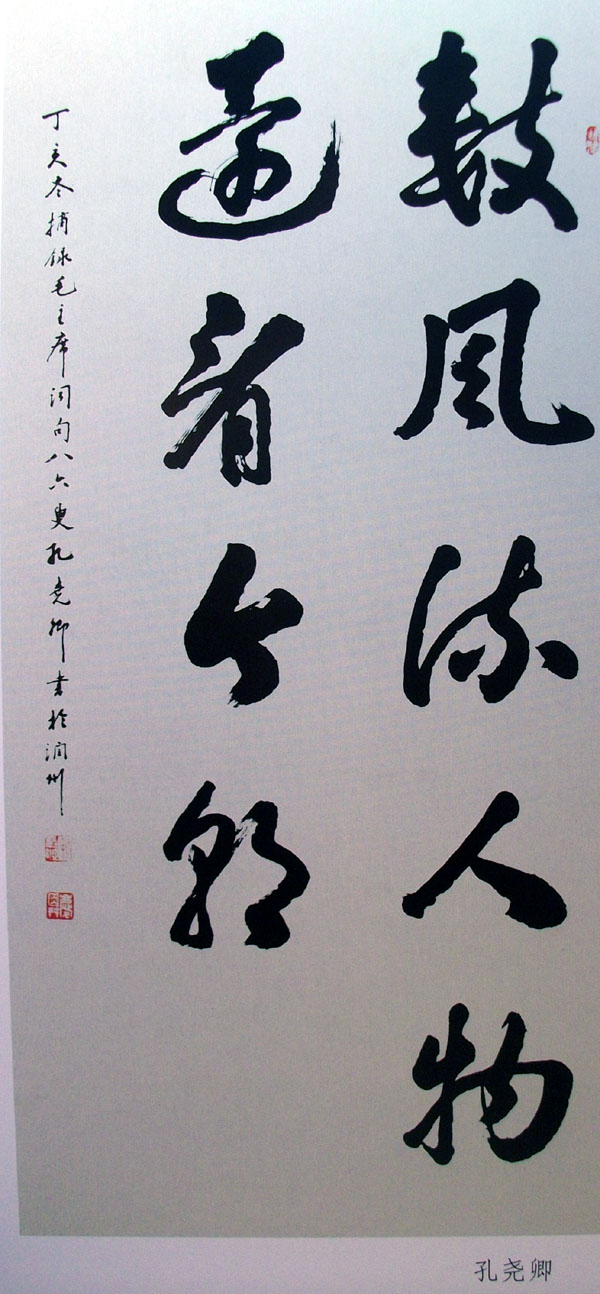 數風流人物
還看今朝
丁亥冬摘録毛主席词句八六叟孔尧卿書於润州
孔尧卿